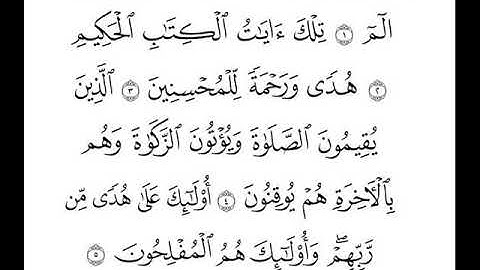 الٓمٓ ۝١ تِلۡكَ ءَايَٰتُ ٱلۡكِتَٰبِ ٱلۡحَكِيمِ
۝٢ هُدٗى وَرَحۡمَةٗ لِّلۡمُحۡسِنِينَ ۝٣ ٱلَّذِينَ
يُقِيمُونَ ٱلصَّلَوٰةَ وَيُؤۡتُونَ ٱلزَّكَوٰةَ وَهُم
بِٱلۡأٓخِرَةِ هُمۡ يُوقِنُونَ ۝٤ أُوْلَٰٓئِكَ عَلَىٰ هُدٗى مِّن
رَّبِّهِمۡۖ وَأُوْلَٰٓئِكَ هُمُ ٱلۡمُفۡلِحُونَ ۝٥